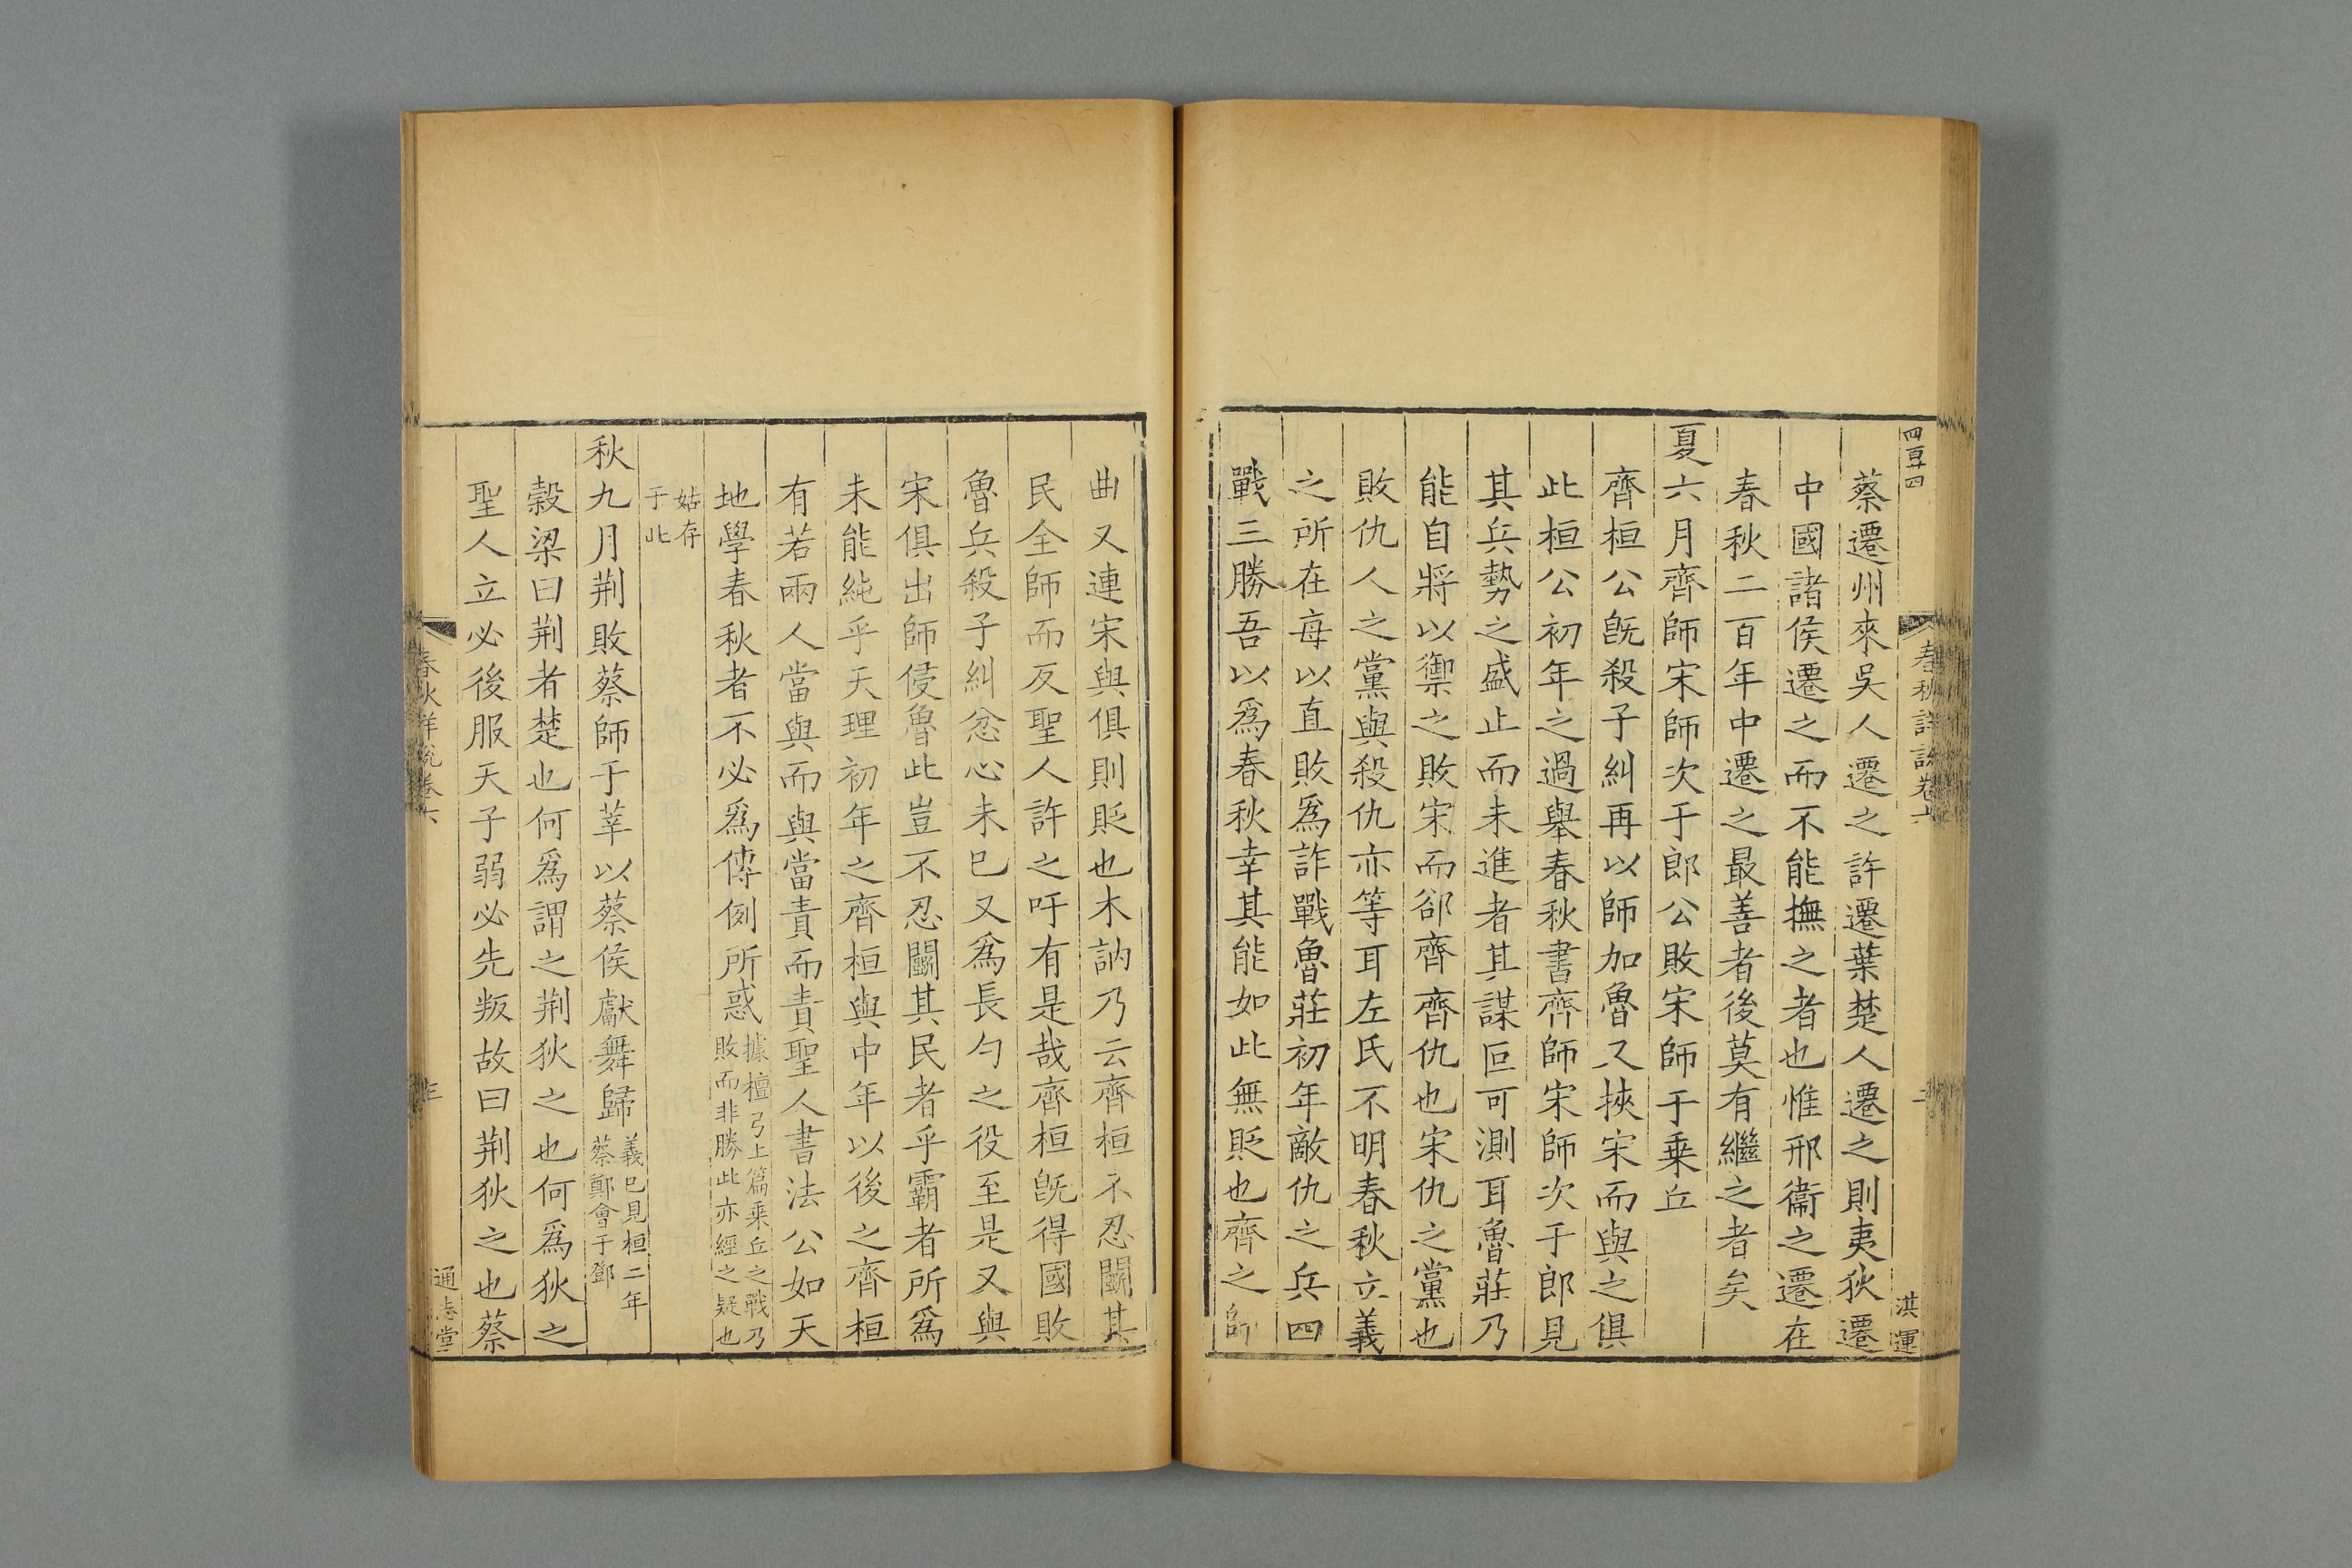 四百十四
春秋詳說卷六
淇運
蔡遷州來吳人遷之許遷葉楚人遷之則夷狄遷
中國諸侯遷之而不能撫之者也惟邢衞之遷在
春秋二百年中遷之最善者後莫有繼之者矣
夏六月齊師宋師次于郎公敗宋師于乗丘
齊桓公旣殺子糾再以師加魯又挾宋而與之俱
此桓公初年之過舉春秋書齊師宋師次于郎見
其兵勢之盛止而未進者其謀叵可測耳魯莊乃
能自將以禦之敗宋而郤齊齊仇也宋仇之黨也
敗仇人之黨與殺仇亦等耳左氏不明春秋立義
之所在毎以直敗爲詐戰魯莊初年敵仇之兵四
戰三勝吾以爲春秋幸其能如此無貶也齊之師
曲又連宋與俱則貶也木訥乃云齊桓不忍鬭其
民全師而反聖人許之吁有是哉齊桓旣得國敗
魯兵殺子糾忿心未已又爲長勺之役至是又與
宋俱出師侵魯此豈不忍鬭其民者乎霸者所爲
未能純乎天理初年之齊桓與中年以後之齊桓
有若兩人當與而與當責而責聖人書法公如天
地學春秋者不必爲傳例所惑據檀弓上篇乗丘之戰乃
敗而非勝此亦經之疑也
姑存
于此
秋九月荆敗蔡師于莘以蔡侯獻舞歸義已見桓二年
蔡鄭會于鄧
榖梁曰荆者楚也何爲謂之荆狄之也何爲狄之
聖人立必後服天子弱必先叛故曰荆狄之也蔡
春秋詳說卷六
通志堂